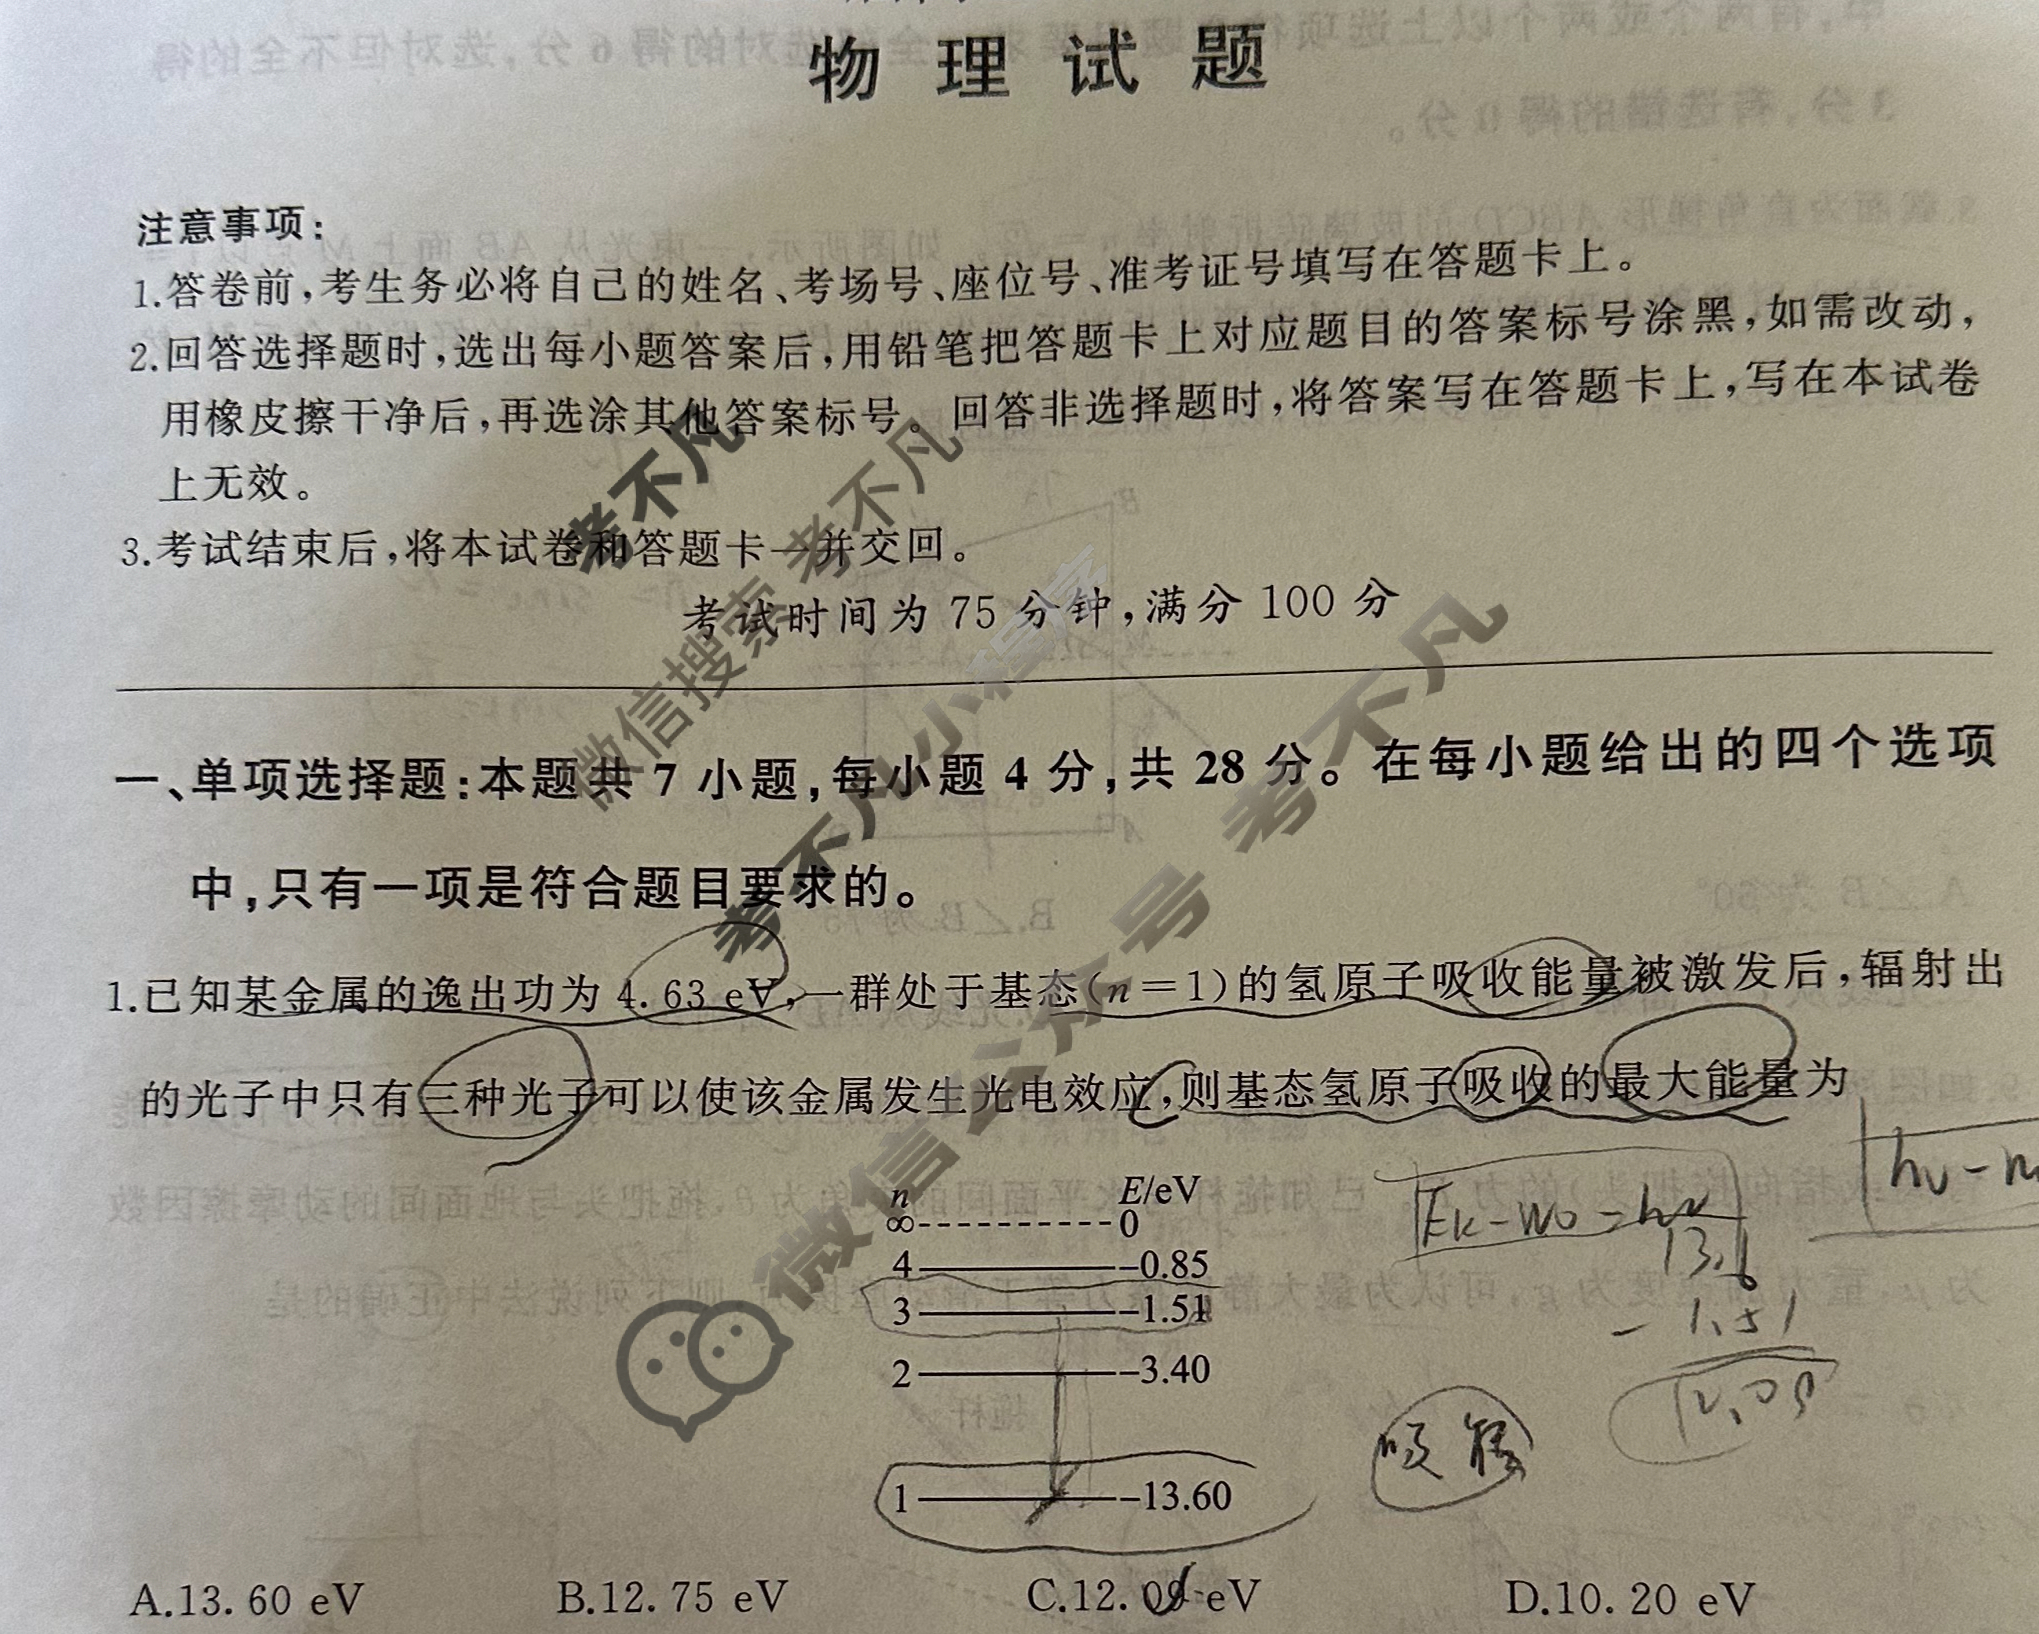 物理试题
注意事项:
1.答卷前,考生务必将自己的姓名、考场号、座位号、准考证号填写在答题卡上。
2.回答选择题时,选出每小题答案后,用铅笔把答题卡上对应题目的答案标号涂黑,如需改动,
用橡皮擦干净后,再选涂其他答案标号。回答非选择题时,将答案写在答题卡上,写在本试卷
上无效。
3.考试结束后,将本试卷和答题卡一并交回。
考试时间为 75 分钟,满分 100 分
一、单项选择题:本题共 7 小题,每小题 4 分,共 28 分。在每小题给出的四个选项
中,只有一项是符合题目要求的。
1.已知某金属的逸出功为 4.63 eV,一群处于基态(n=1)的氢原子吸收能量被激发后,辐射出
的光子中只有三种光子可以使该金属发生光电效应,则基态氢原子吸收的最大能量为
n E/eV
∞ 0
4 -0.85
3 -1.51
2 -3.40
1 -13.60
Ek-W0=hν
13.6
-1.51
12.09
hν-
吸
A.13.60 eV B.12.75 eV C.12.09 eV D.10.20 eV
考不凡
微信搜索 考不凡
考不凡小程序
微信公众号 考不凡